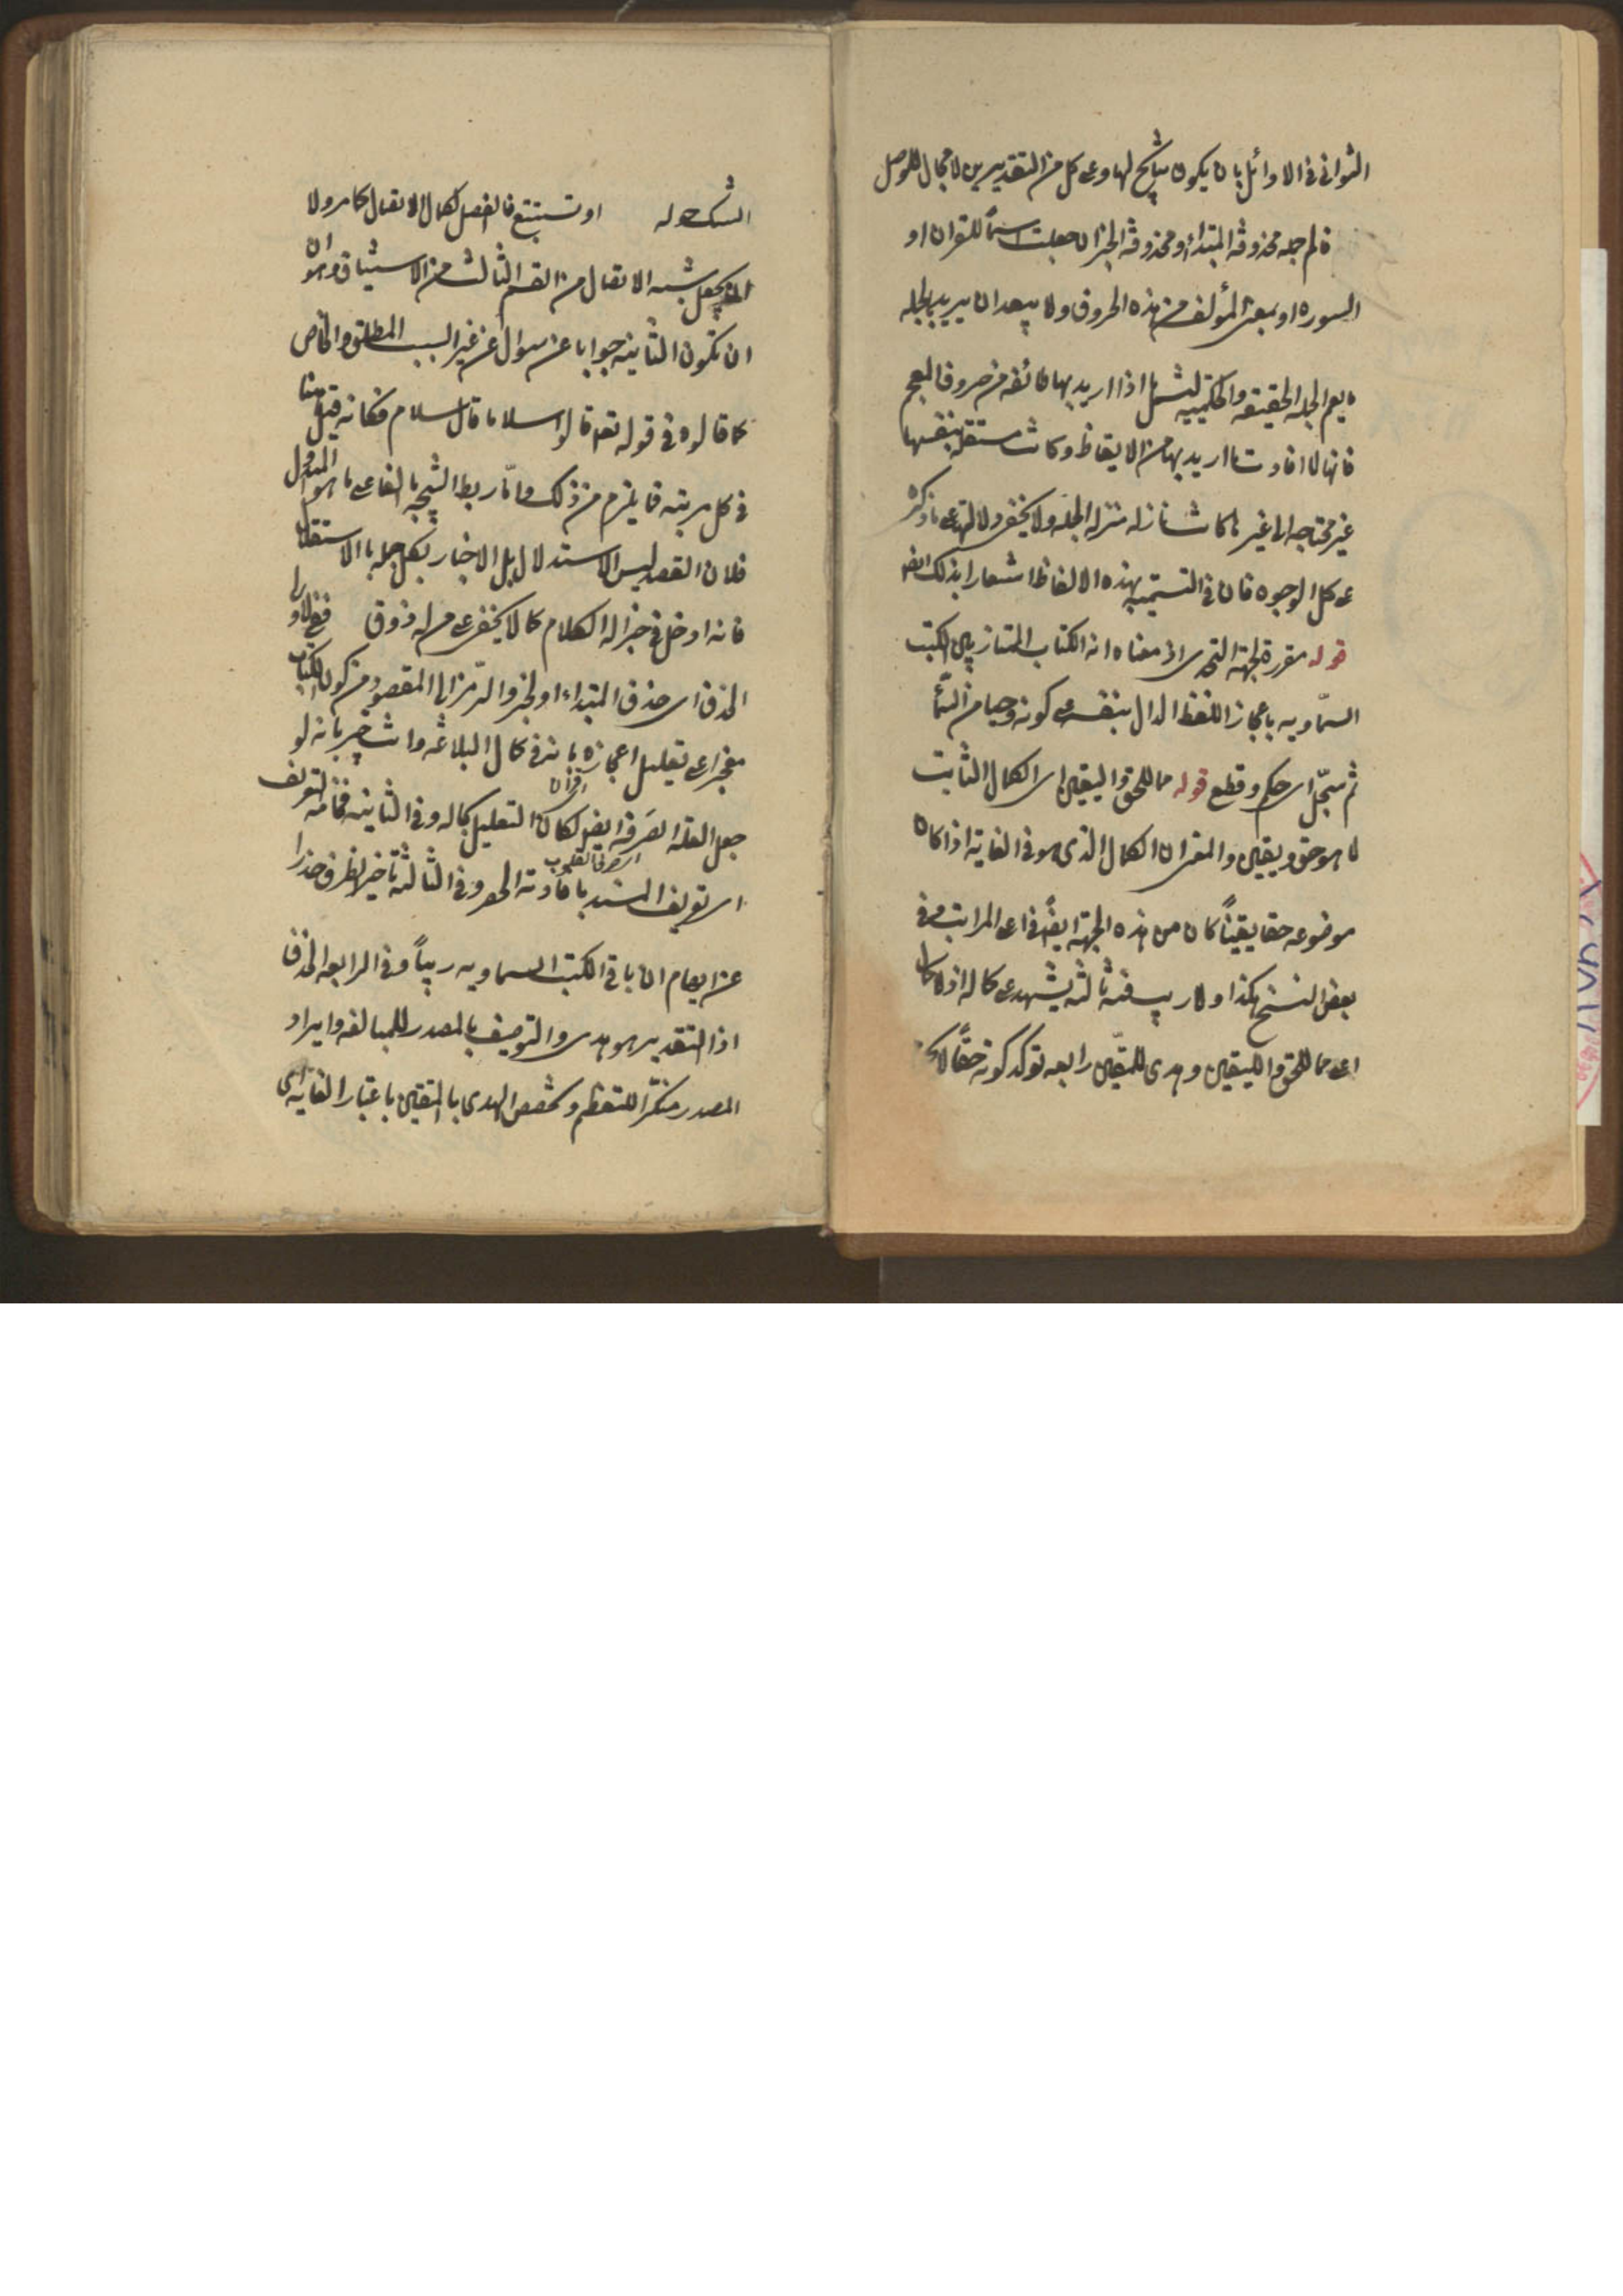 الثواني في الاوائل بان يكون نتايج لها وعلى كل من التقديرين لا مجال للوصل
فالم جمله محذوفة المبتداء او محذوفة الخبر ان جعلت اسماً للقران او
السوره او بمعنى المؤلف من هذه الحروف ولا يبعد ان يريد بالجمله
ما يعم الجمله الحقيقه والحكميه لتشمل ما اذا اريد بها طائفه من حروف المعجم
فانها لما افادت ما اريد بها من الايقاظ وكانت مستقله بنفسها
غير محتاجه الى غيرها كانت نازله منزله الجمله ولا يخفى دلالتها على ما ذكر
على كل الوجوه فان في التسميه بهذه الالفاظ اشعارا بذلك ايضا
قوله مقررة لجهة التحدى اذ معناه انه الكتاب الممتاز بين الكتب
السماويه باعجاز اللفظ الدال بنفسه على كونه وحيا من السما
ثم سجل اى حكم وقطع قوله مما للحق واليقين اى الكمال الثابت
لما هو حق ويقين والمعنى ان الكمال الذى هو في الغايه اذا كان
موضوعه حقا يقيناً كان من هذه الجهة ايضاً في اعلى المراتب وفي
بعض النسخ هكذا ولا ريب فيه ثالثه يشهد على كماله اذ لا كمال
اعلى مما للحق واليقين وهدى للمتقين رابعه توكد كونه حقاً لا
الشك حوله او تستتبع فالفصل لكمال الاتصال كما مر ولا
ان يجعل شبه الاتصال من القسم الثالث من الاستيناف وهو
ان تكون الثانيه جوابا عن سوال عن غير السبب المطلق والخاص
كما قالوه في قوله تعه قالوا سلاما قال سلام فكانه قيل هنا
في كل مرتبه فما يلزم من ذلك واما ربط النتيجه بالفا على ما هو المتداول
فلان القصد ليس الاستدلال بل الاخبار بكل جمله بالاستقلال
فانه ادخل في جزاله الكلام كما لا يخفى على من له ذوق ففي الاولى
الحذف اى حذف المبتداء او الخبر والرمز الى المقصود من كون الكتاب
معجزا على تعليل اعجازه بانه في كمال البلاغه وانت خبير بانه لو
جعل العله الصرفة ايضا لكان التعليل بحاله وفي الثانيه فخامة التعريف
اى القران
اى تعريف المسند بافادته الحصر وفي الثالثه تاخير الظرف حذرا
اى صرف القلوب
عن ايهام ان باقي الكتب السماويه ريباً وفي الرابعه الحذف
اذ التقدير هو هدى والتوصيف بالمصدر للمبالغه وايراد
المصدر منكراً للتعظيم وتخصيص الهدى بالمتقين باعتبار الغايه اى